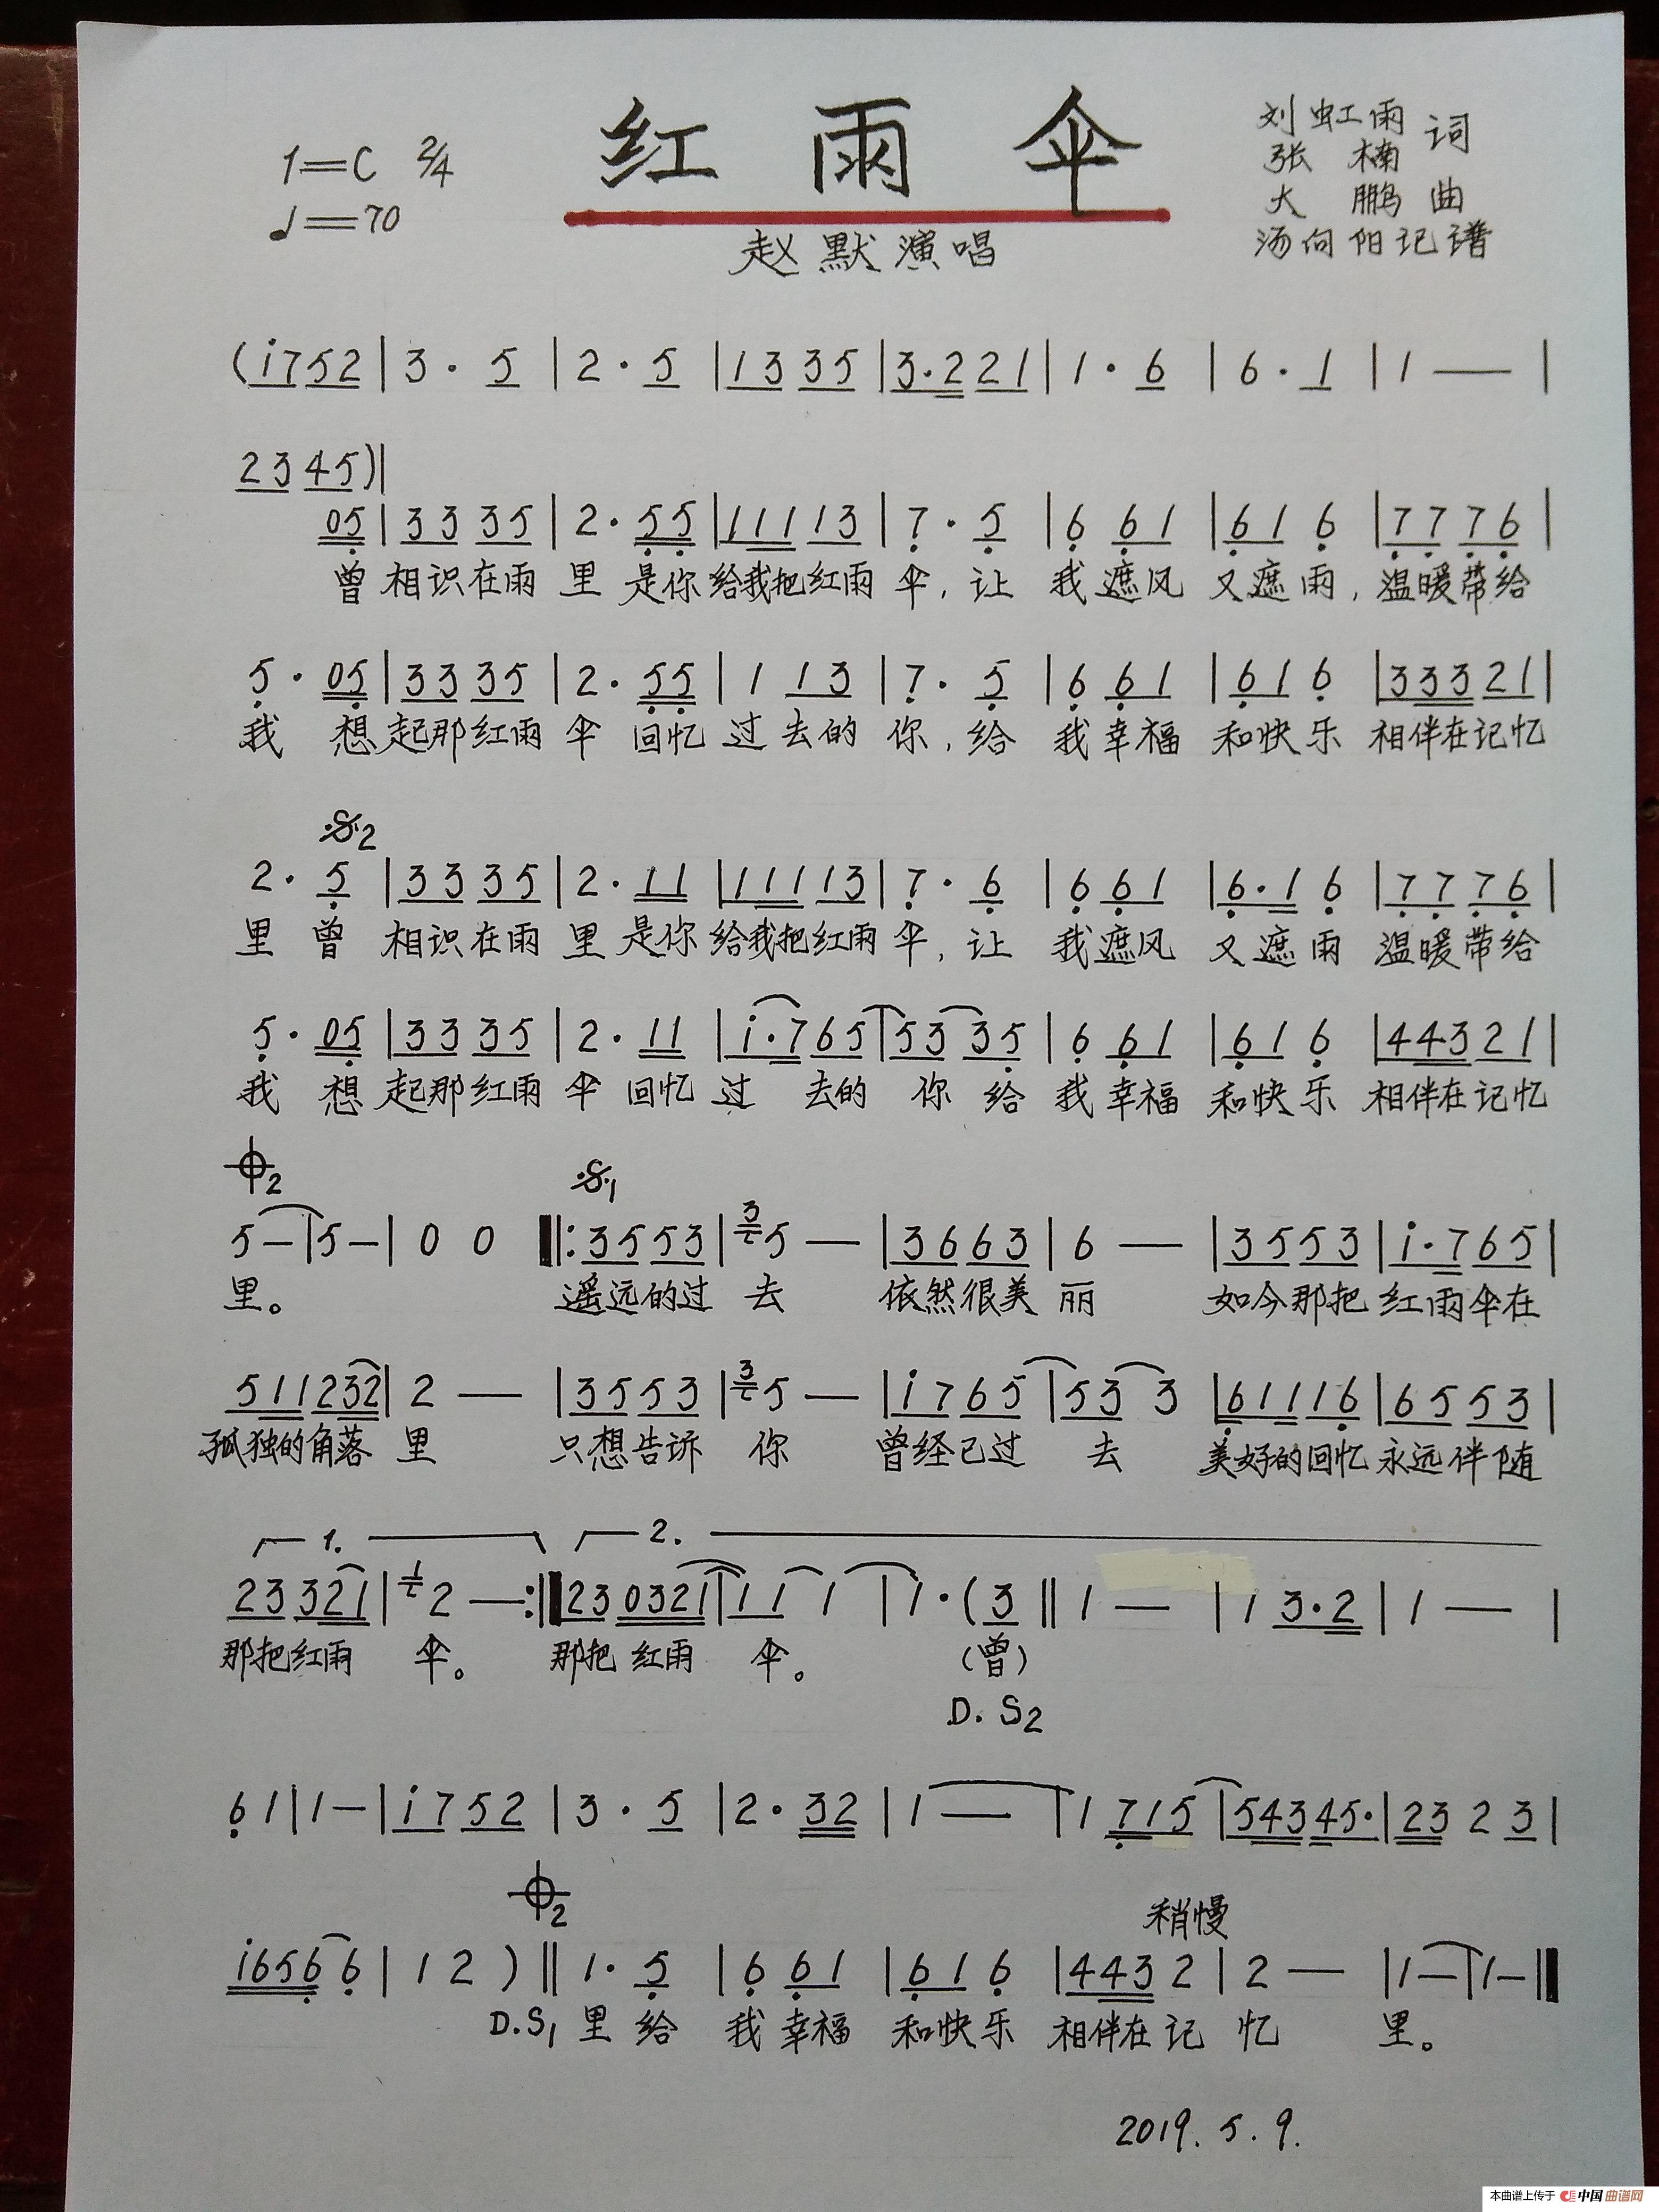 红雨伞
1=C 2/4
♩=70
刘虹雨 词
张楠
大鹏 曲
汤向阳记谱
赵默演唱
(i752|3·5|2·5|1335|3·221|1·6|6·1|1—|
2345)|
05|3335|2·55|11113|7·5|661|616|7776|
曾相识在雨里是你给我把红雨伞,让我遮风又遮雨,温暖带给
5·05|3335|2·55|113|7·5|661|616|33321|
我想起那红雨伞回忆过去的你,给我幸福和快乐相伴在记忆
𝄋2
2·5|3335|2·11|11113|7·6|661|6·16|7776|
里曾相识在雨里是你给我把红雨伞,让我遮风又遮雨温暖带给
5·05|3335|2·11|i·765|5335|661|616|44321|
我想起那红雨伞回忆过去的你给我幸福和快乐相伴在记忆
𝄌2 𝄋1
5—|5—|0 0‖:3553|3 5—|3663|6—|3553|i·765|
里。遥远的过去依然很美丽如今那把红雨伞在
511232|2—|3553|3 5—|i765|533|61116|6553|
孤独的角落里只想告诉你曾经已过去美好的回忆永远伴随
1. 2.
23321|1 2—:‖230321|111|1·(3‖1—|13·2|1—|
那把红雨伞。那把红雨伞。(曾)
D.S2
61|1—|i752|3·5|2·32|1—|1715|54345·|2323|
𝄌2 稍慢
i6566|12)‖1·5|661|616|4432|2—|1—|1—‖
D.S1里给我幸福和快乐相伴在记忆里。
2019.5.9.
本曲谱上传于 中国曲谱网